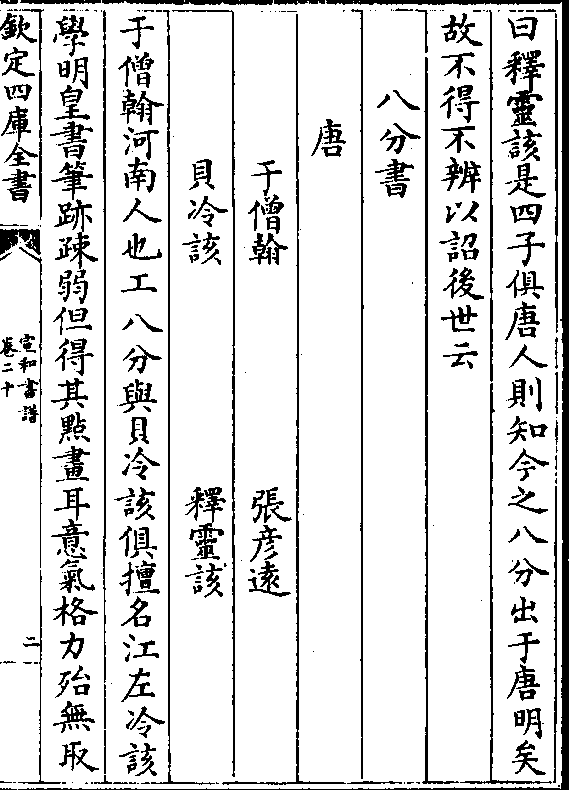 曰釋靈該是四子俱唐人則知今之八分出于唐明矣
故不得不辨以詔後世云
八分書
唐
于僧翰　張彦遠
貝冷該　釋靈該
于僧翰河南人也工八分與貝冷該俱擅名江左冷該
學明皇書筆跡疎弱但得其點畫耳意氣格力殆無取
欽定四庫全書
宣和書譜
卷二十
二